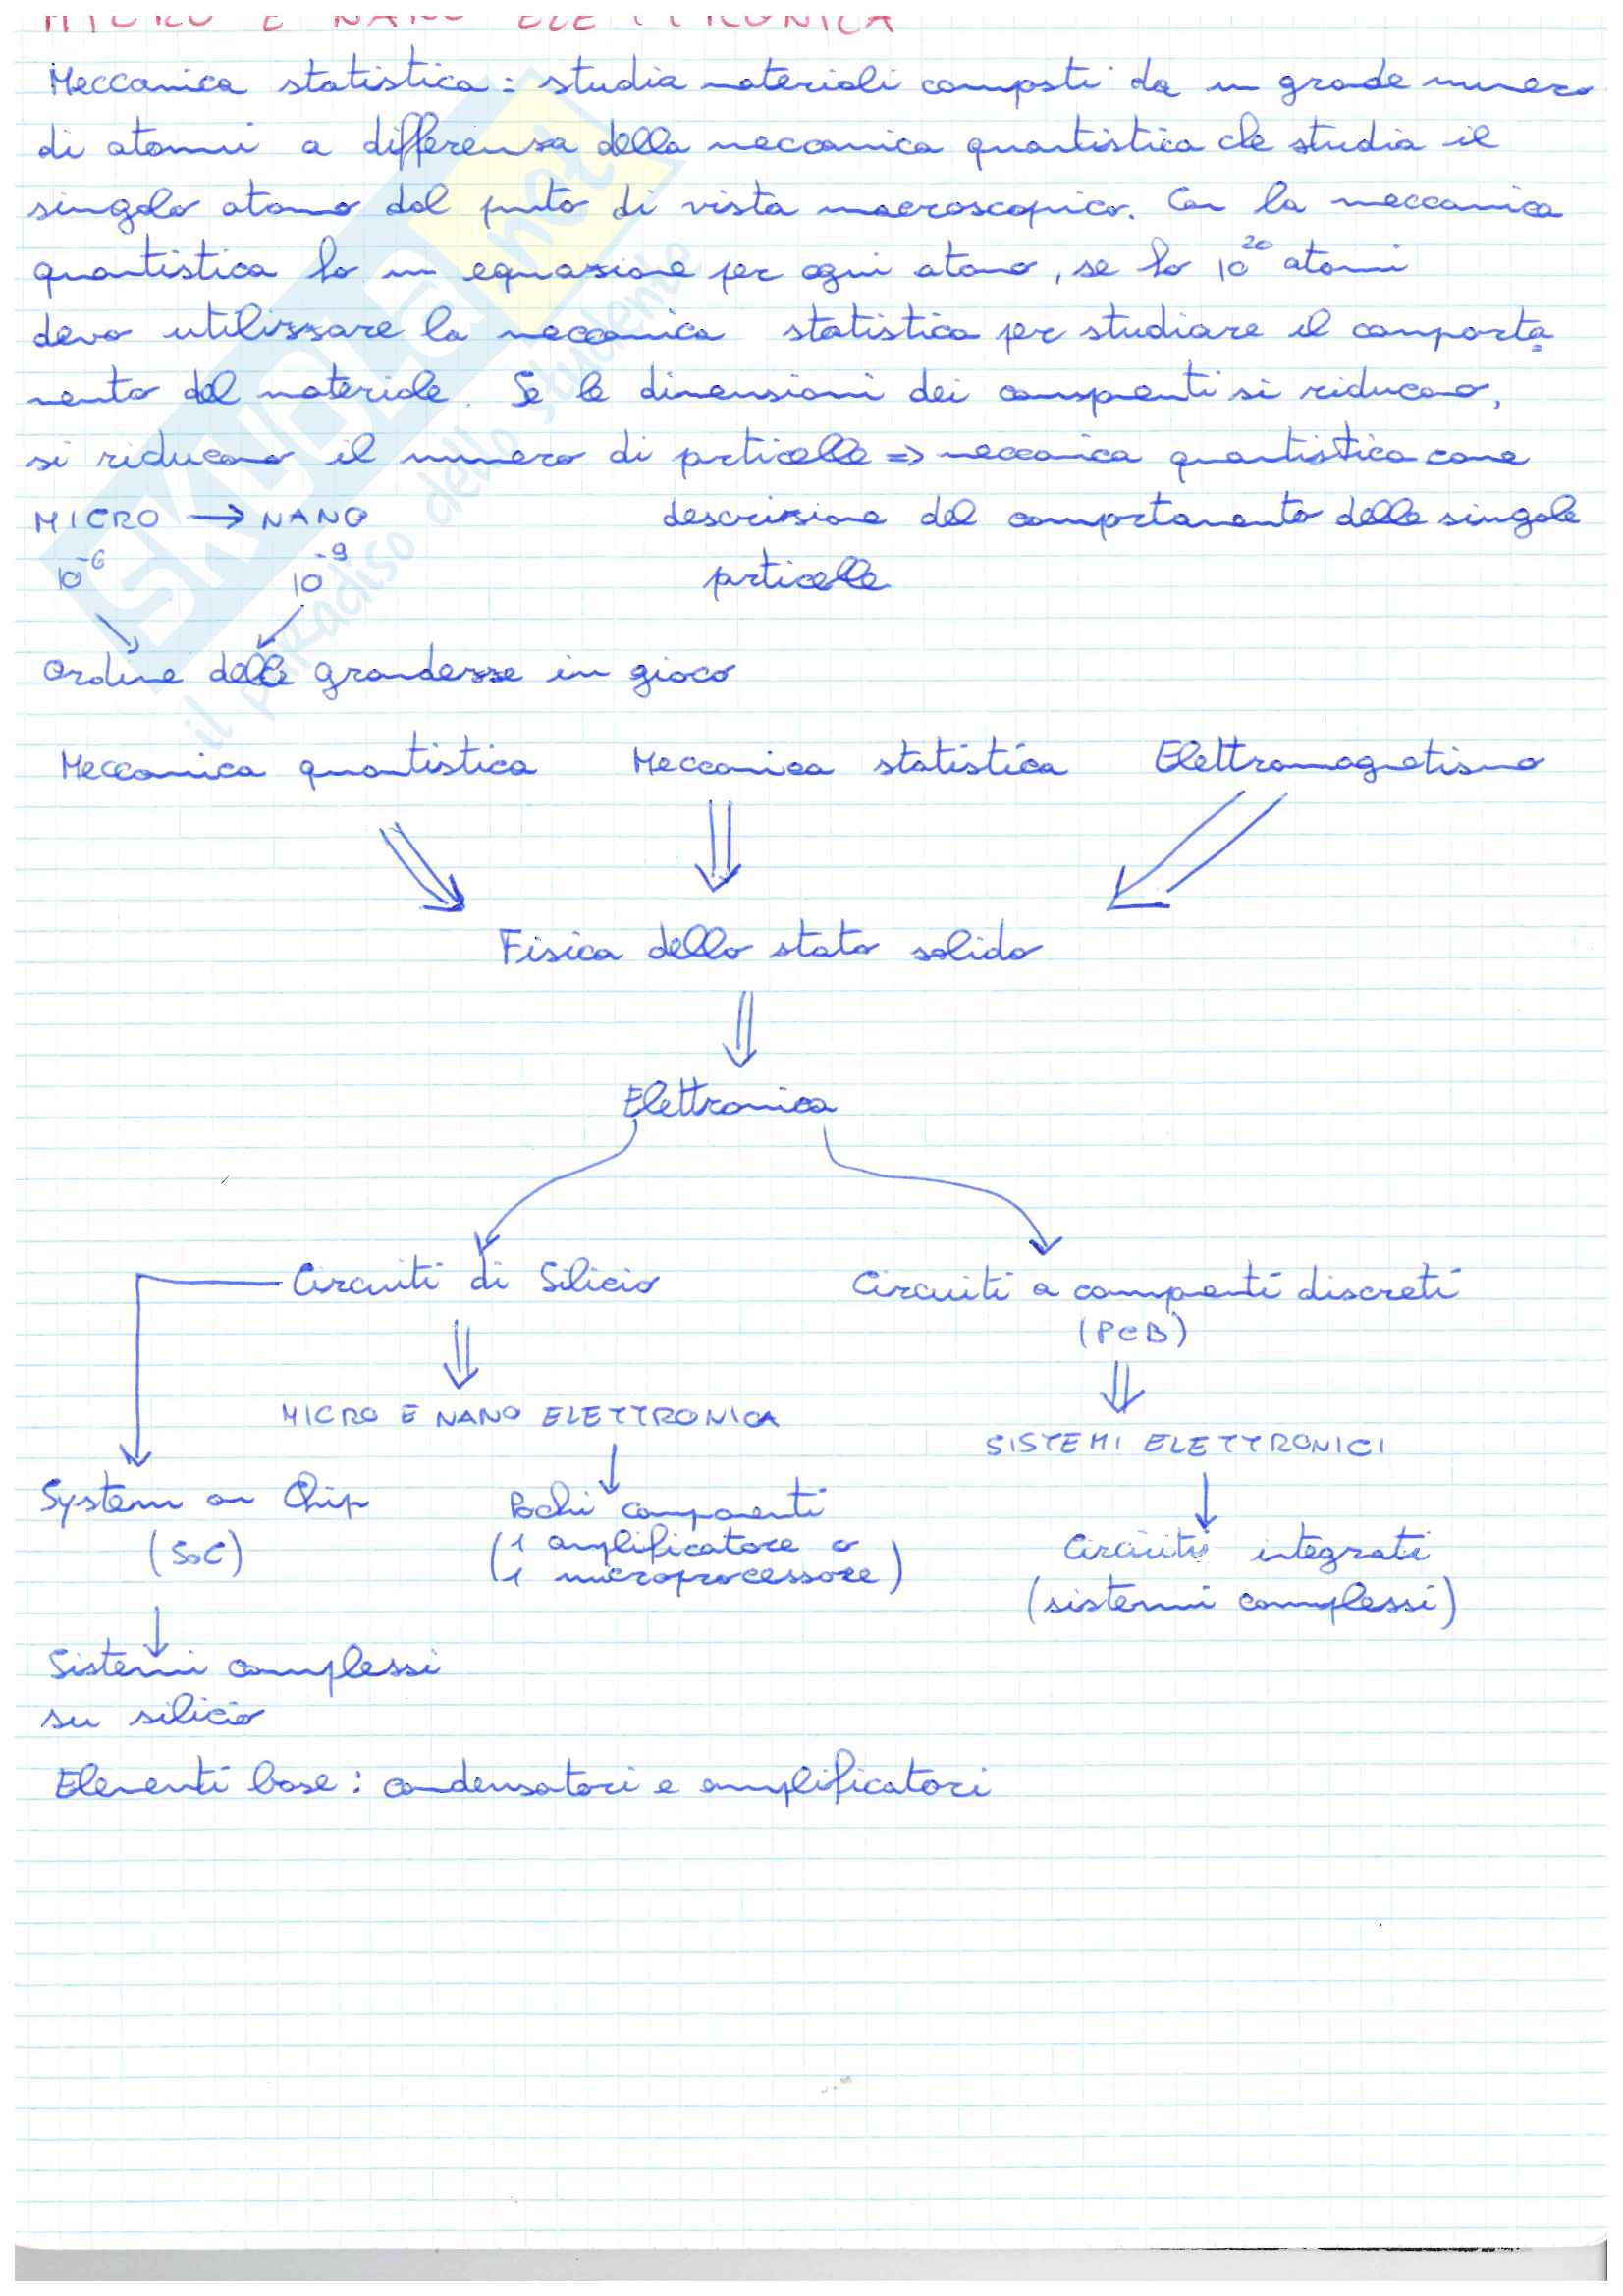 MICRO E NANO ELETTRONICA
Meccanica statistica: studia materiali composti da un grande numero
di atomi a differenza della meccanica quantistica che studia il
singolo atomo dal punto di vista macroscopico. Con la meccanica
quantistica ho un equazione per ogni atomo, se ho 10^20 atomi
devo utilizzare la meccanica statistica per studiare il comporta
mento del materiale. Se le dimensioni dei componenti si riducono,
si riducono il numero di particelle => meccanica quantistica come
MICRO → NANO descrizione del comportamento delle singole
10^-6 10^-9 particelle
Ordine delle grandezze in gioco
Meccanica quantistica Meccanica statistica Elettromagnetismo
Fisica dello stato solido
Elettronica
Circuiti di Silicio Circuiti a componenti discreti
(PCB)
MICRO E NANO ELETTRONICA
SISTEMI ELETTRONICI
System on Chip Pochi componenti
(SoC) (1 amplificatore o
1 microprocessore)
Circuiti integrati
(sistemi complessi)
Sistemi complessi
su silicio
Elementi base: condensatori e amplificatori
SKUOLA.net
il paradiso dello studente